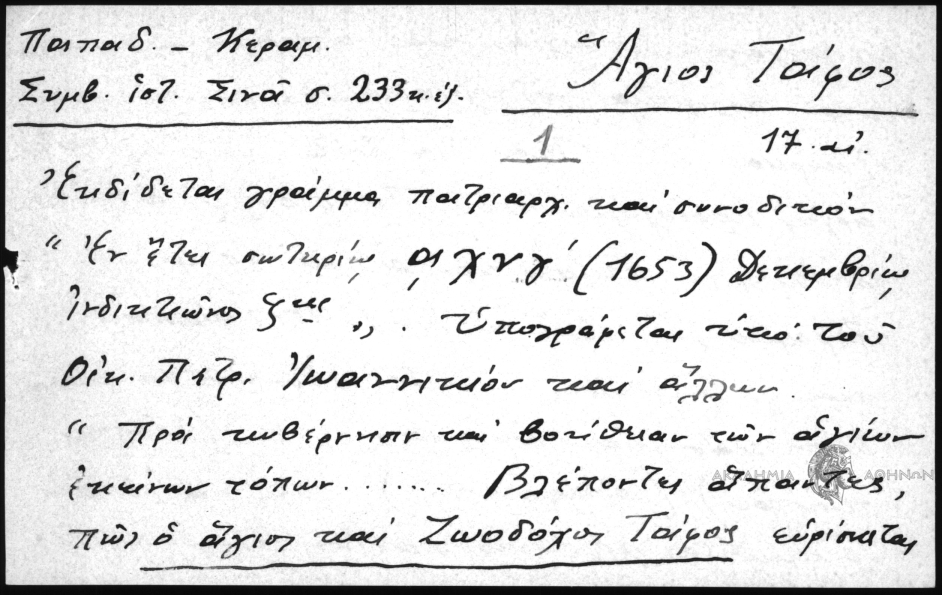 Παπαδ. - Κεραμ.
Συμβ. ἱστ. Σινᾶ σ. 233 κ. ἑξ.
Ἅγιος Τάφος
1
17. αἰ.
Ἐκδίδεται γράμμα πατριαρχ. καί συνοδικόν
“ Ἐν ἔτει σωτηρίῳ ͵αχνγ΄ (1653) Δεκεμβρίῳ
ἰνδικτιῶνος ζης „ . Ὑπογράφεται ὑπό τοῦ
Οἰκ. Πατρ. Ἰωαννικίου καί ἄλλων.
“ Πρός κυβέρνησιν καί βοήθειαν τῶν ἁγίων
ἐκείνων τόπων ....... Βλέποντες ἅπαντες,
πῶς ὁ ἅγιος καί Ζωοδόχος Τάφος εὑρίσκεται
ΑΚΑΔΗΜΙΑ ΑΘΗΝΩΝ